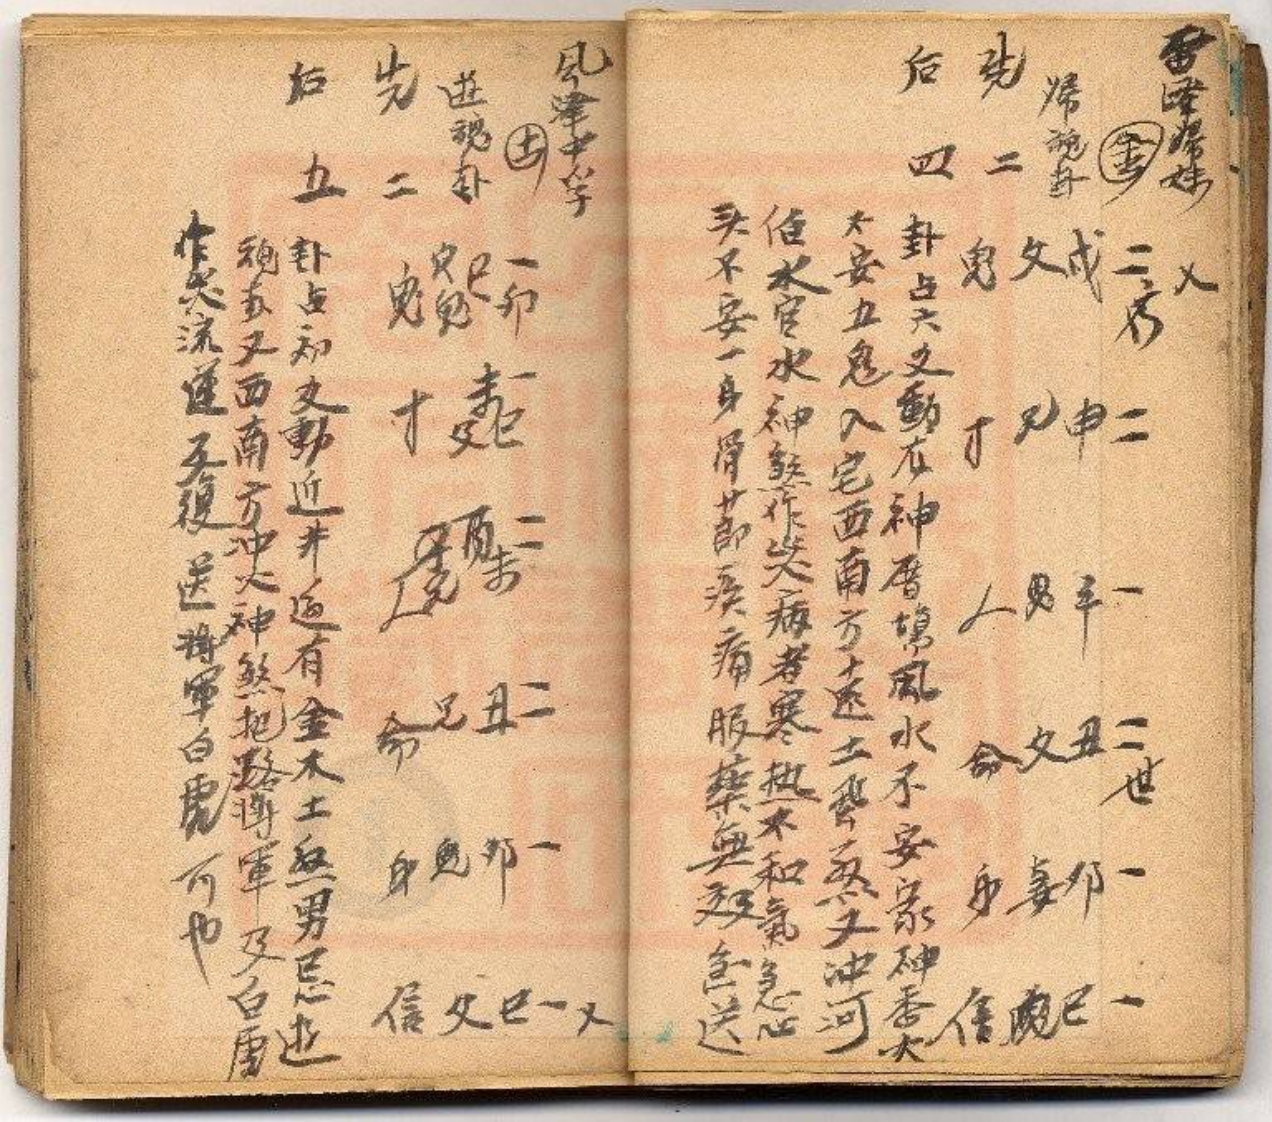 雷澤歸妹
金
歸魂卦
先二
后四
乂
二 戌 父 鬼
二 申 兄 才
一 鬼 人
二世 丑 父 命
一 卯 妻 身
一 巳 鬼 信
卦占六爻動在神厝墳風水不安家神香火
不安五鬼入宅西南方
土煞又沖河
伯水官水神煞作災病者寒热不和氣急心
头不安一身骨節疾痛服藥無效急送
風澤中孚
遊魂卦
先二
后五
一卯 巳 鬼
一 未巳 父 才
二 酉未 人
二 丑 兄 命
一 卯 鬼 身
一 巳 父 信
乂
卦占初爻動近井邊有金木土煞男忌遊
魂卦又西南方沖火神煞把路將軍及白虎
作災流連反復送將軍白虎可也